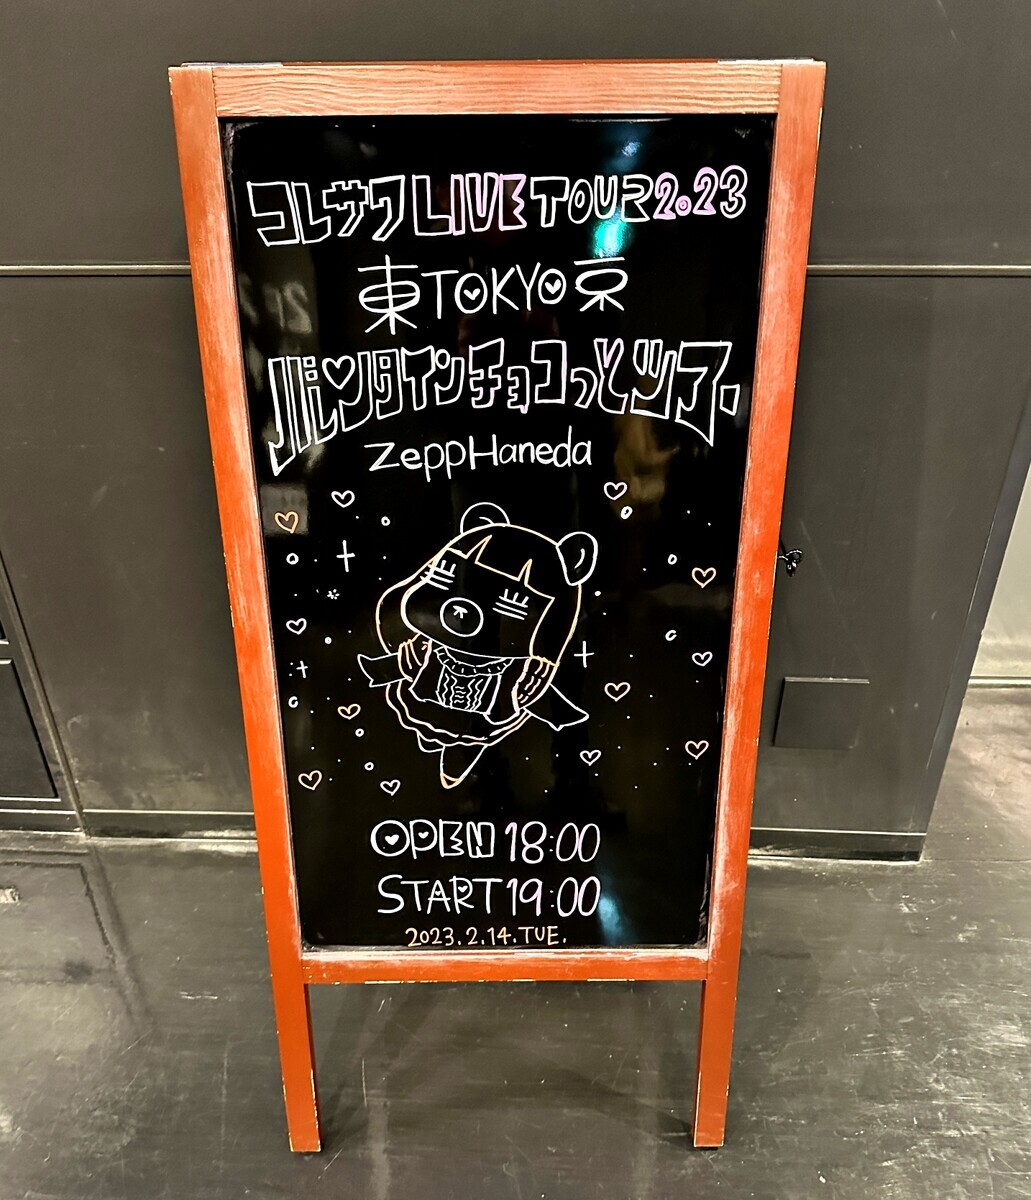 コレサワ LIVE TOUR 2023
東TOKYO京
バレンタインチョコっとツアー
Zepp Haneda
OPEN 18:00
START 19:00
2023.2.14.TUE.